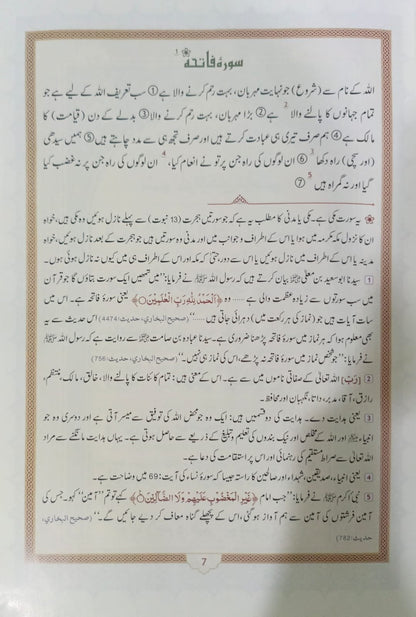 سورۂ فاتحہ
اللہ کے نام سے (شروع) جو نہایت مہربان، بہت رحم کرنے والا ہے ① سب تعریف اللہ کے لیے ہے جو
تمام جہانوں کا پالنے والا 2 ہے ② بڑا مہربان، بہت رحم کرنے والا ③ بدلے کے دن (قیامت) کا
مالک ہے ④ ہم صرف تیری ہی عبادت کرتے ہیں اور صرف تجھ ہی سے مدد چاہتے ہیں ⑤ ہمیں سیدھی
(اور سچی) راہ دکھا 3 ⑥ ان لوگوں کی راہ جن پر تو نے انعام کیا، 4 ان لوگوں کی راہ جن پر نہ غضب کیا
گیا اور نہ گمراہ ہیں 5 ⑦
یہ سورت مکی ہے۔ مکی یا مدنی کا مطلب یہ ہے کہ جو سورتیں ہجرت (13 نبوت) سے پہلے نازل ہوئیں وہ مکی ہیں، خواہ
ان کا نزول مکہ مکرمہ میں ہوا یا اس کے اطراف و جوانب میں اور مدنی وہ سورتیں ہیں جو ہجرت کے بعد نازل ہوئیں، خواہ
مدینہ یا اس کے اطراف میں نازل ہوئیں یا اس سے دور حتی کہ مکہ اور اس کے اطراف ہی میں کیوں نہ نازل ہوئی ہوں۔
1 سیدنا ابوسعید بن معلی ﷜ بیان کرتے ہیں کہ رسول اللہ ﷺ نے فرمایا: ”میں تمھیں ایک سورت بتاؤں گا جو قرآن
میں سب سورتوں سے زیادہ عظمت والی ہے ..... وہ ﴿اَلْحَمْدُ لِلّٰهِ رَبِّ الْعٰلَمِيْنَ﴾ یعنی سورۂ فاتحہ ہے۔ اس میں
سات آیات ہیں جو (نماز کی ہر رکعت میں) دہرائی جاتی ہیں .....“ (صحيح البخاري، حديث: 4474) اس حدیث سے یہ
بھی معلوم ہوا کہ ہر نماز میں سورۂ فاتحہ پڑھنا ضروری ہے۔ سیدنا عبادہ بن صامت ﷜ سے روایت ہے کہ رسول اللہ ﷺ
نے فرمایا: ”جو شخص نماز میں سورۂ فاتحہ نہ پڑھے، اس کی نماز ہی نہیں۔“ (صحيح البخاري، حديث: 756)
2 (رَبّ) اللہ تعالیٰ کے صفاتی ناموں میں سے ہے۔ اس کے معنی ہیں: تمام کائنات کا پالنے والا، خالق، مالک، منتظم،
رازق، آقا، مدبر، داتا، نگہبان اور محافظ۔
3 یعنی ہدایت دے۔ ہدایت کی دو قسمیں ہیں: ایک وہ جو محض اللہ کی توفیق سے میسر آتی ہے اور دوسری وہ جو
انبیاء ﷩ اور اللہ کے مخلص اور نیک بندوں کی تعلیم و تبلیغ کے ذریعے سے حاصل ہوتی ہے۔ یہاں ہدایت مانگنے سے مراد
اللہ تعالیٰ سے صراط مستقیم کی رہنمائی اور اس پر استقامت کی دعا ہے۔
4 یعنی انبیاء، صدیقین، شہداء اور صالحین کا راستہ جیسا کہ سورۂ نساء کی آیت: 69 میں وضاحت ہے۔
5 نبی اکرم ﷺ نے فرمایا: ”جب امام ﴿غَيْرِ الْمَغْضُوْبِ عَلَيْهِمْ وَلَا الضَّآلِّيْنَ﴾ کہے تو تم ”آمین“ کہو۔ جس کی
آمین فرشتوں کی آمین سے ہم آواز ہو گئی، اس کے پچھلے گناہ معاف کر دیے جائیں گے۔“ (صحيح البخاري،
حديث: 782)
7